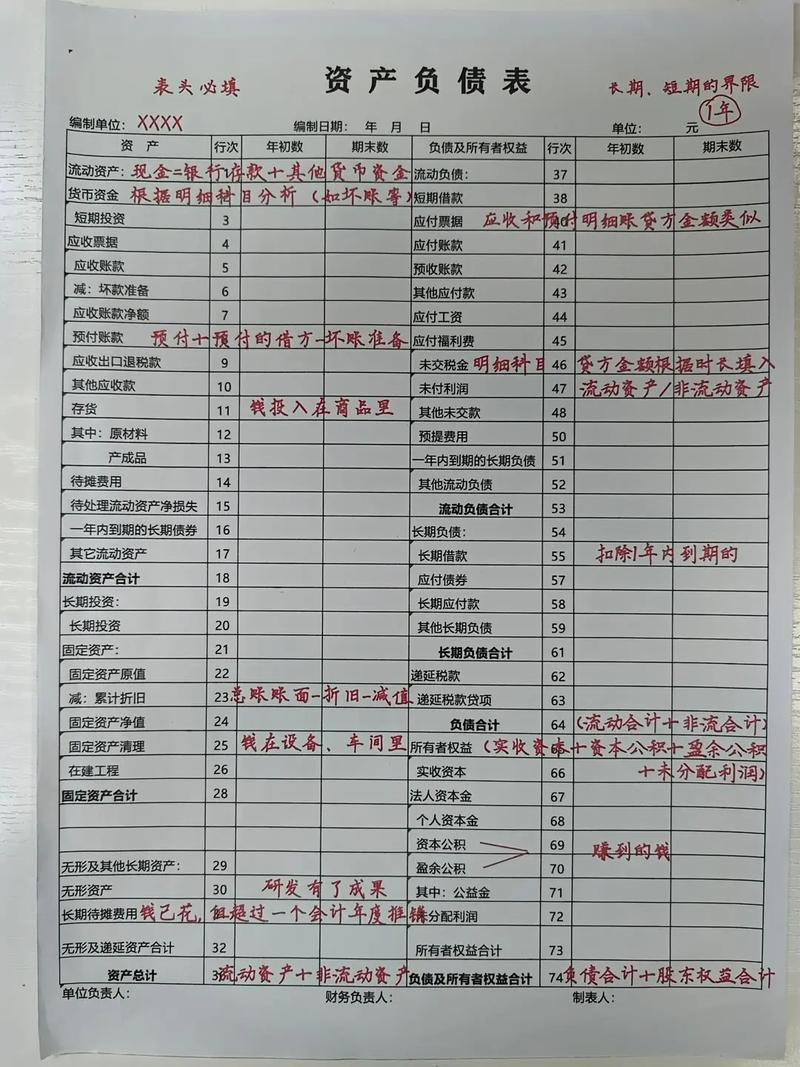 资产负债表
表头必填
长期、短期的界限
1年
编制单位： XXXX 编制日期： 年 月 日 单位： 元
资 产 行次 年初数 期末数 负债及所有者权益 行次 年初数 期末数
流动资产： 现金=银行存款+其他货币资金 流动负债： 37
货币资金 根据明细科目分析（如坏账等） 短期借款 38
短期投资 3 应付票据 应收和预付明细账贷方金额类似
应收票据 4 应付账款 41
应收账款 5 预收账款 42
减：坏款准备 6 其他应付款 43
应收账款净额 7 应付工资 44
预付账款 预付+预付的借方-坏账准备 应付福利费 45
应收出口退税款 9 未交税金 明细科目 46 贷方金额根据时长填入
其他应收款 10 未付利润 47 流动资产/非流动资产
存货 11 钱投入在商品里 其他未交款 48
其中：原材料 12 预提费用 50
产成品 13 一年内到期的长期负债 51
待摊费用 14 其他流动负债 52
待处理流动资产净损失 15 流动负债合计 53
一年内到期的长期债券 16 长期负债： 54
其它流动资产 17 长期借款 55 扣除1年内到期的
流动资产合计 18 应付债券 57
长期投资： 19 长期应付款 58
长期投资 20 其他长期负债 59
固定资产： 21 长期负债合计 61
固定资产原值 22 递延税款 62
减：累计折旧 23 总账账面-折旧-减值 递延税款贷项 63
固定资产净值 24 负债合计 64 （流动合计+非流合计）
固定资产清理 25 钱在设备、车间里 所有者权益 （实收资本+资本公积+盈余公积
在建工程 26 实收资本 66 +未分配利润）
固定资产合计 28 法人资本金 67
个人资本金 68
资本公积 69 赚到的钱
无形及其他长期资产： 29 盈余公积 70
无形资产 30 研发有了成果 其中：公益金 71
长期待摊费用 钱已花，但超过一个会计年度摊销 分配利润 72
无形及递延资产合计 32 所有者权益合计 73
资产总计 3 流动资产+非流动资产 负债及所有者权益合计 74 负债合计+股东权益合计
单位负责人： 财务负责人： 制表人：